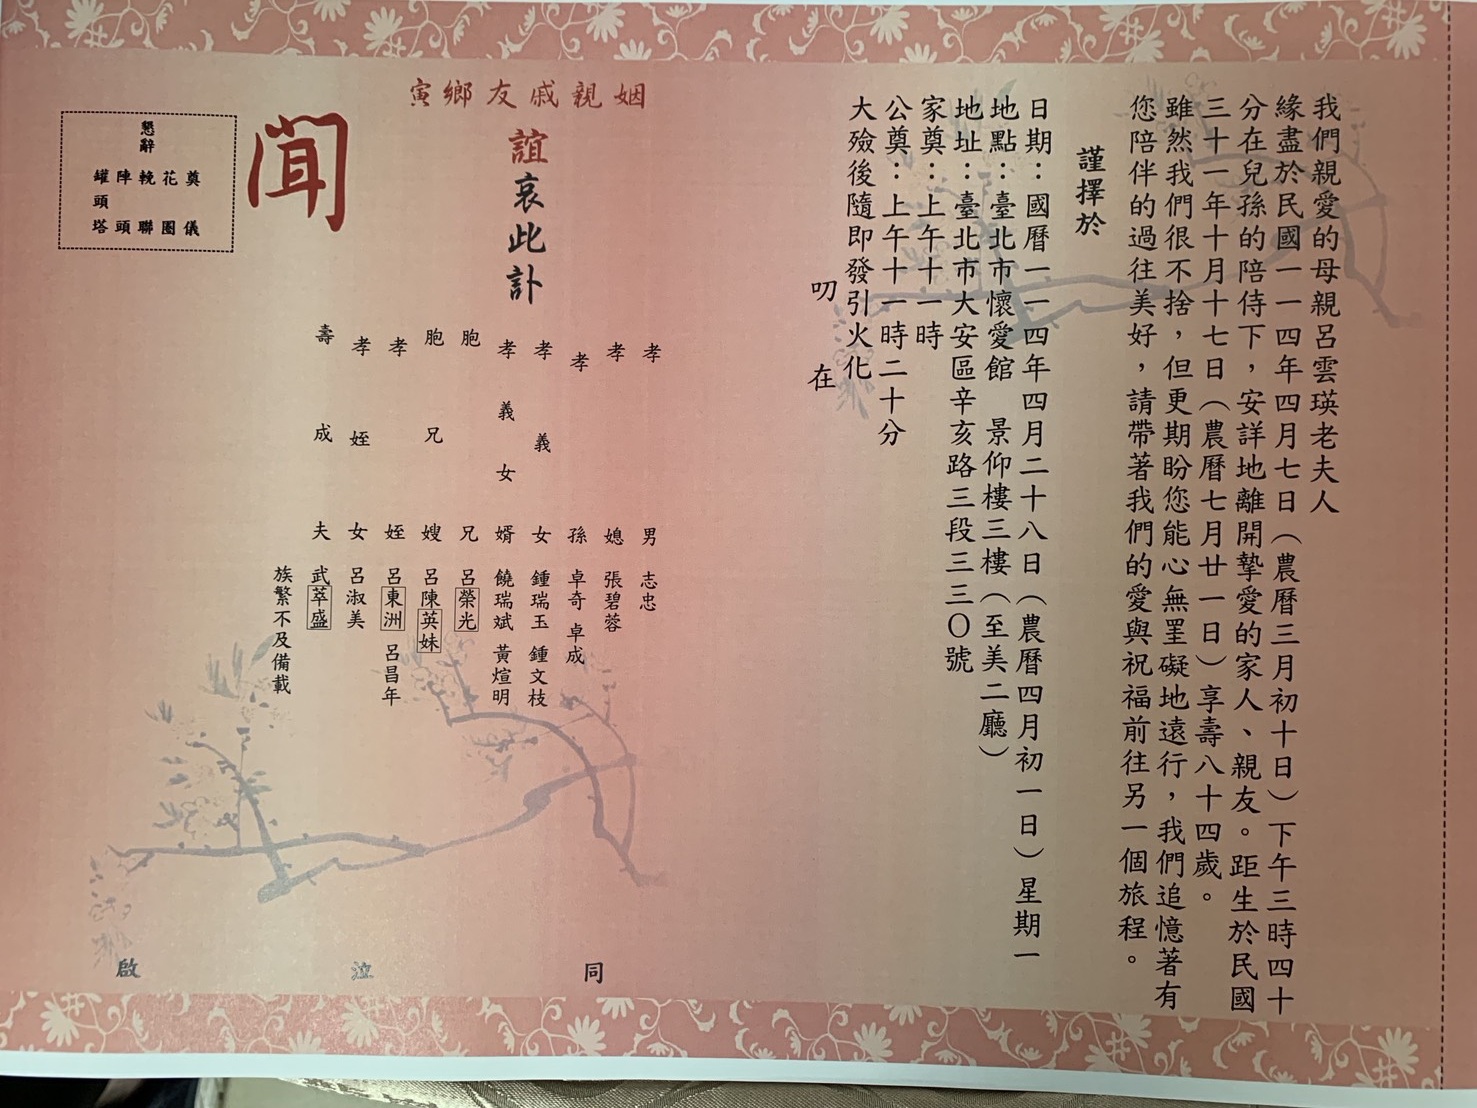 我們親愛的母親呂雲瑛老夫人
緣盡於民國一一四年四月七日（農曆三月初十日）下午三時四十
分在兒孫的陪侍下，安詳地離開摯愛的家人、親友。距生於民國
三十一年十月十七日（農曆七月廿一日）享壽八十四歲。
雖然我們很不捨，但更期盼您能心無罣礙地遠行，我們追憶著有
您陪伴的過往美好，請帶著我們的愛與祝福前往另一個旅程。
謹擇於
日期：國曆一一四年四月二十八日（農曆四月初一日）星期一
地點：臺北市懷愛館 景仰樓三樓（至美二廳）
地址：臺北市大安區辛亥路三段三三〇號
家奠：上午十一時
公奠：上午十一時二十分
大殮後隨即發引火化
叨在
姻親戚友鄉寅
誼哀此訃
聞
孝男 志忠
孝媳 張碧蓉
孝孫 卓奇 卓成
孝義女 鍾瑞玉 鍾文枝
孝義女婿 饒瑞斌 黃煊明
胞兄 呂榮光
胞兄嫂 呂陳英妹
孝姪 呂東洲 呂昌年
孝姪女 呂淑美
壽成夫 武萃盛
族繁不及備載
同泣啟
懇辭
奠儀
花圈
輓聯
陣頭
罐頭塔